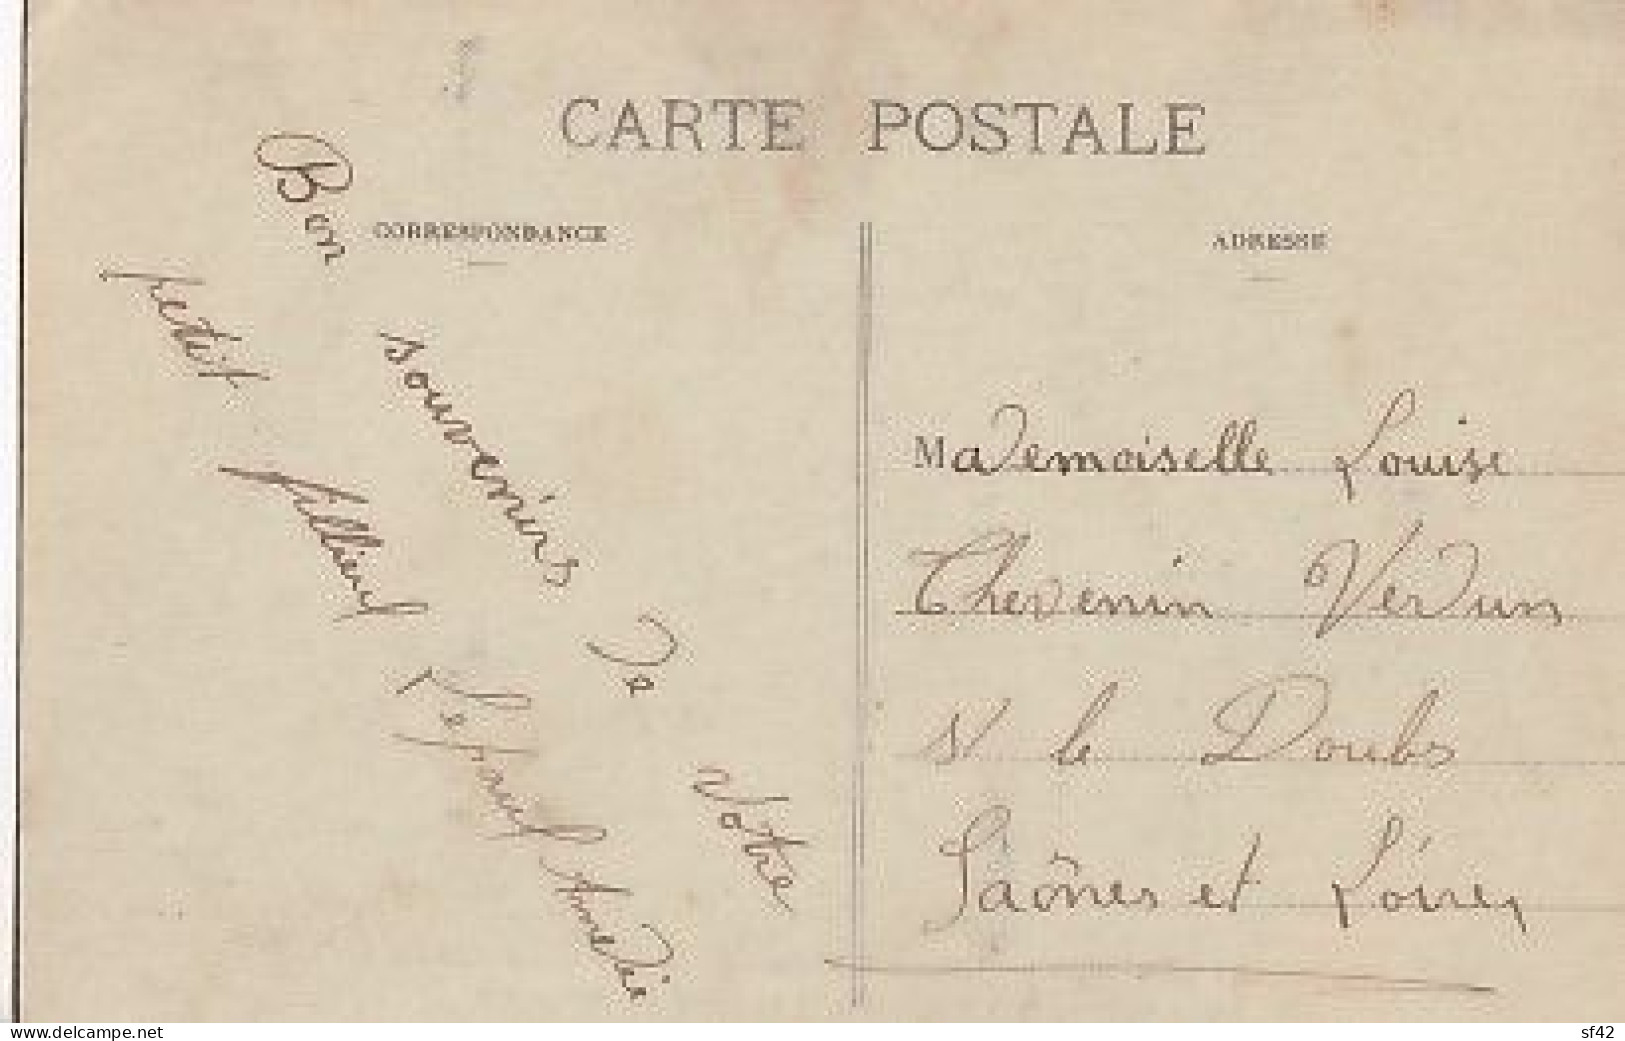 CARTE POSTALE
CORRESPONDANCE
ADRESSE
Bon souvenirs de votre
petit filleul Lefranc Amédée
Mademoiselle Louise
Thevenin Verdun
s/ le Doubs
Saônes et Loire
www.delcampe.net
sf42